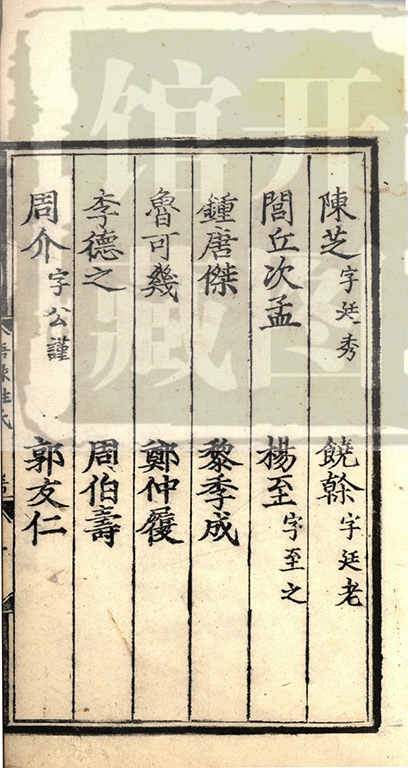 陳芝字廷秀 饒榦字廷老
閭丘次孟 楊至字至之
鍾唐傑 黎季成
魯可幾 鄭仲履
李德之 周伯壽
周介字公謹 郭友仁
開圖
館藏